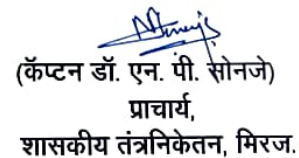 (कॅप्टन डॉ. एन. पी. सोनजे)
प्राचार्य,
शासकीय तंत्रनिकेतन, मिरज.